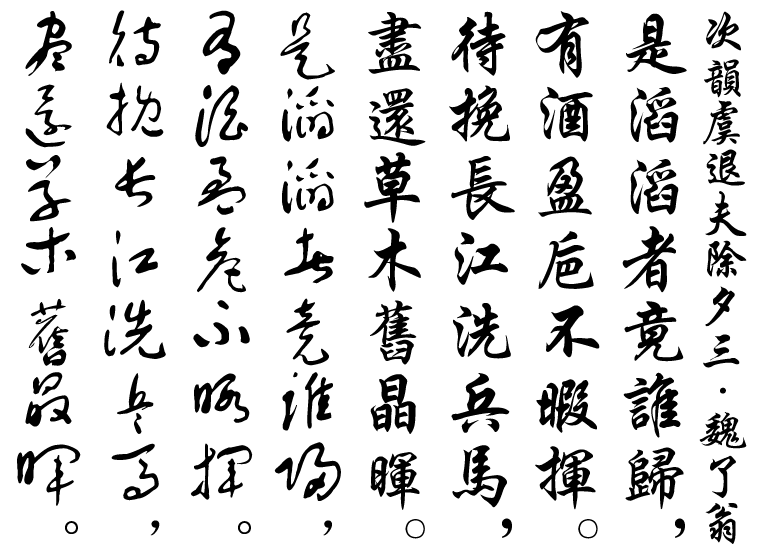 次韻虞退夫除夕三·魏了翁
是滔滔者竟誰歸，
有酒盈巵不暇揮。
待挽長江洗兵馬，
盡還草木舊晶暉。
是滔滔者竟誰歸，
有酒盈巵不暇揮。
待挽長江洗兵馬，
盡還草木舊晶暉。